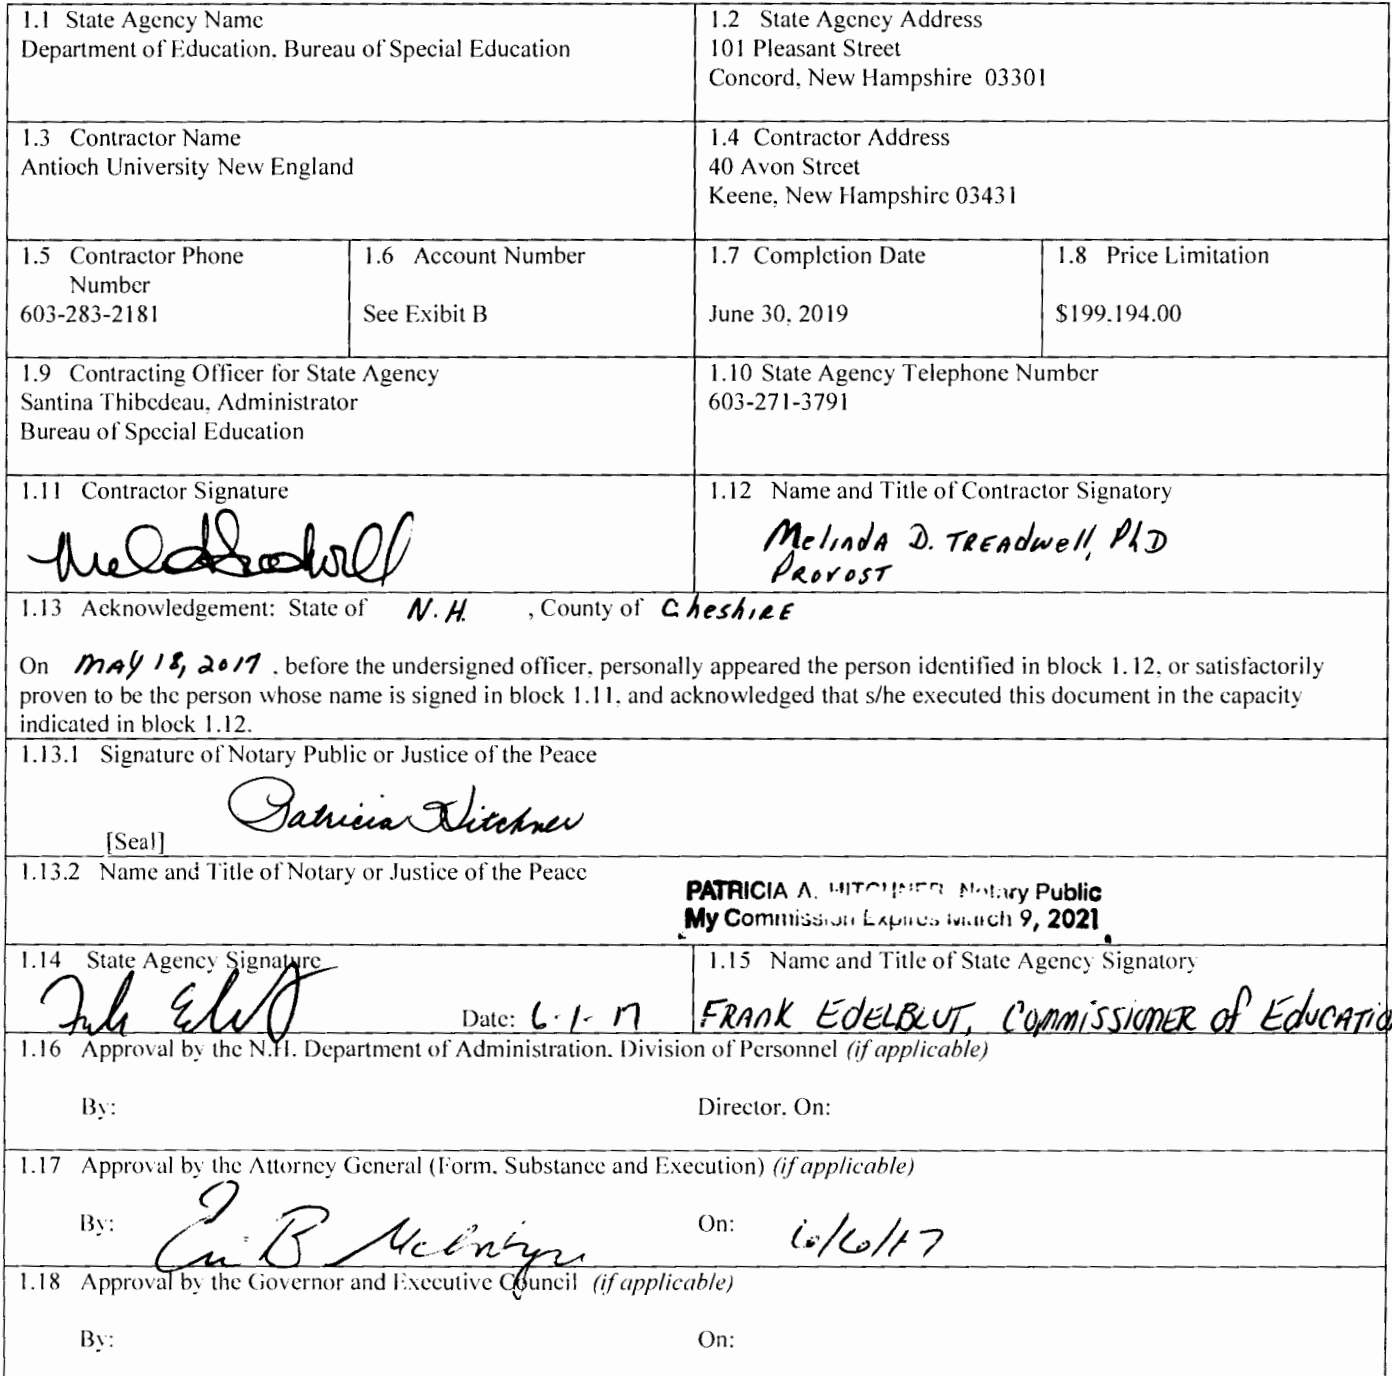 1.1 State Agency Name
Department of Education, Bureau of Special Education
1.2 State Agency Address
101 Pleasant Street
Concord, New Hampshire 03301
1.3 Contractor Name
Antioch University New England
1.4 Contractor Address
40 Avon Street
Keene, New Hampshire 03431
1.5 Contractor Phone
Number
603-283-2181
1.6 Account Number
See Exhibit B
1.7 Completion Date
June 30, 2019
1.8 Price Limitation
$199,194.00
1.9 Contracting Officer for State Agency
Santina Thibedeau, Administrator
Bureau of Special Education
1.10 State Agency Telephone Number
603-271-3791
1.11 Contractor Signature
1.12 Name and Title of Contractor Signatory
Melinda D. Treadwell, PhD
Provost
1.13 Acknowledgement: State of N.H. , County of Cheshire
On May 18, 2017 , before the undersigned officer, personally appeared the person identified in block 1.12, or satisfactorily
proven to be the person whose name is signed in block 1.11, and acknowledged that s/he executed this document in the capacity
indicated in block 1.12.
1.13.1 Signature of Notary Public or Justice of the Peace
Patricia Hitchner
[Seal]
1.13.2 Name and Title of Notary or Justice of the Peace
PATRICIA A. HITCHNER, Notary Public
My Commission Expires March 9, 2021
1.14 State Agency Signature
Date: 6-1-17
1.15 Name and Title of State Agency Signatory
FRANK EDELBLUT, COMMISSIONER of EDUCATIO
1.16 Approval by the N.H. Department of Administration, Division of Personnel (if applicable)
By: Director, On:
1.17 Approval by the Attorney General (Form, Substance and Execution) (if applicable)
By: B McIntyre On: 6/6/17
1.18 Approval by the Governor and Executive Council (if applicable)
By: On: